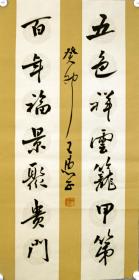 五色祥雲籠甲第
百年福景聚貴門
癸卯